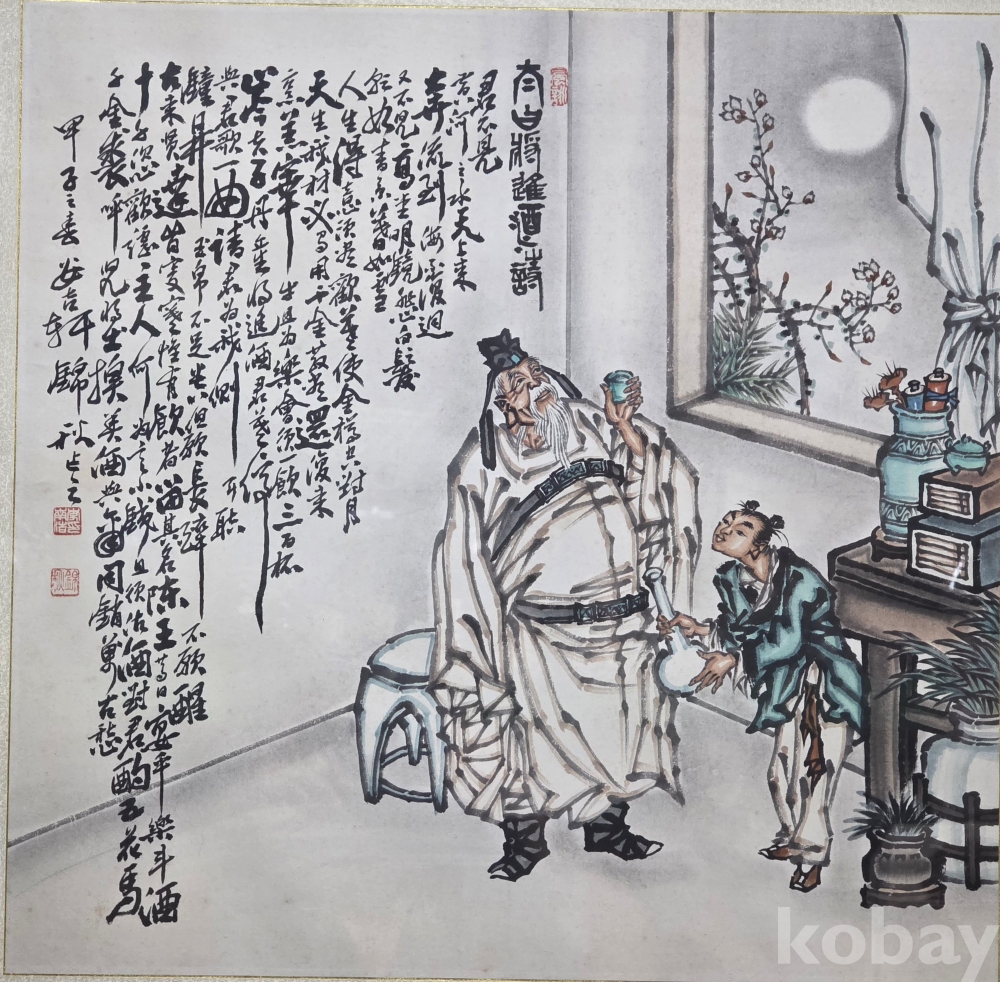 太白將進酒詩
君不見
黃河之水天上來
奔流到海不復迴
又不見高堂明鏡悲白髮
朝如青絲暮如雪
人生得意須盡歡莫使金樽空對月
天生我材必有用千金散盡還復來
烹羊宰牛且為樂會須一飲三百杯
岑夫子丹丘生將進酒君莫停
與君歌一曲請君為我側耳聽
鐘鼎玉帛不足貴但願長醉不願醒
古來賢達皆寂寞惟有飲者留其名陳王昔日宴平樂斗酒
十千恣歡謔主人何為言少錢且須沽酒對君酌五花馬
千金裘呼兒將出換美酒與爾同銷萬古愁
甲子之春
kobay